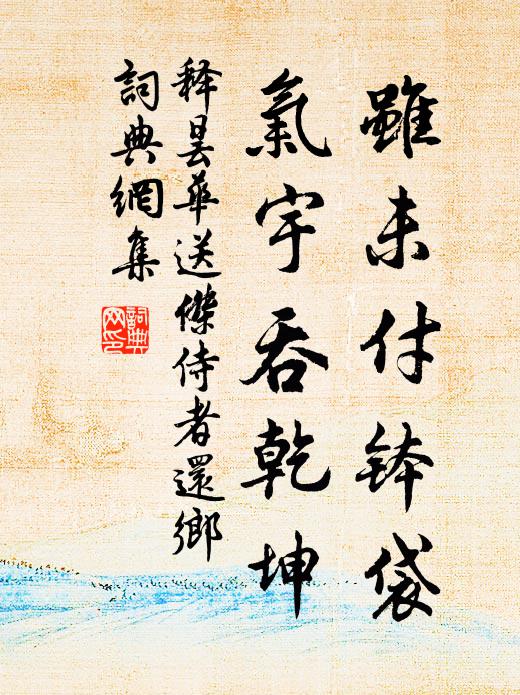 雖未付钵袋
氣宇吞乾坤
释曇華送傑侍者還鄉
詞典網集
詞典網印